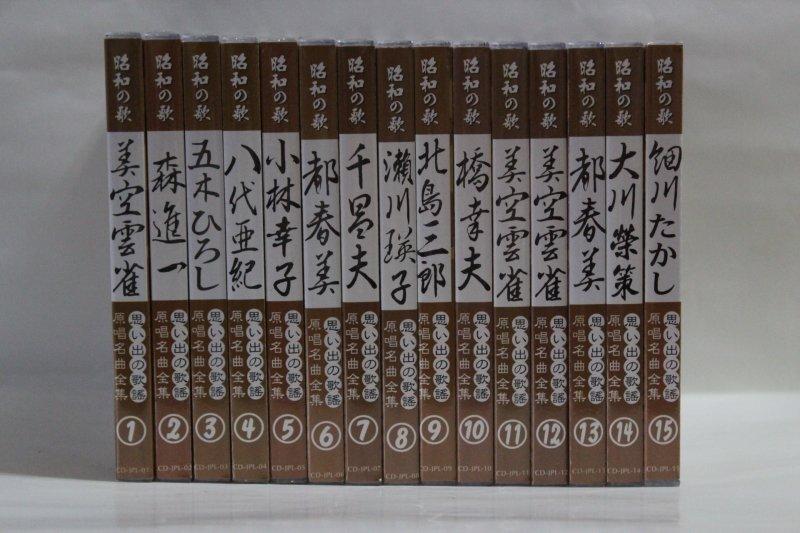 昭和の歌
美空雲雀
思い出の歌謡
原唱名曲全集
1
CD-JPL-01
昭和の歌
森進一
思い出の歌謡
原唱名曲全集
2
CD-JPL-02
昭和の歌
五木ひろし
思い出の歌謡
原唱名曲全集
3
CD-JPL-03
昭和の歌
八代亜紀
思い出の歌謡
原唱名曲全集
4
CD-JPL-04
昭和の歌
小林幸子
思い出の歌謡
原唱名曲全集
5
CD-JPL-05
昭和の歌
都春美
思い出の歌謡
原唱名曲全集
6
CD-JPL-06
昭和の歌
千昌夫
思い出の歌謡
原唱名曲全集
7
CD-JPL-07
昭和の歌
瀬川瑛子
思い出の歌謡
原唱名曲全集
8
CD-JPL-08
昭和の歌
北島三郎
思い出の歌謡
原唱名曲全集
9
CD-JPL-09
昭和の歌
橋幸夫
思い出の歌謡
原唱名曲全集
10
CD-JPL-10
昭和の歌
美空雲雀
思い出の歌謡
原唱名曲全集
11
CD-JPL-11
昭和の歌
美空雲雀
思い出の歌謡
原唱名曲全集
12
CD-JPL-12
昭和の歌
都春美
思い出の歌謡
原唱名曲全集
13
CD-JPL-13
昭和の歌
大川榮策
思い出の歌謡
原唱名曲全集
14
CD-JPL-14
昭和の歌
細川たかし
思い出の歌謡
原唱名曲全集
15
CD-JPL-15